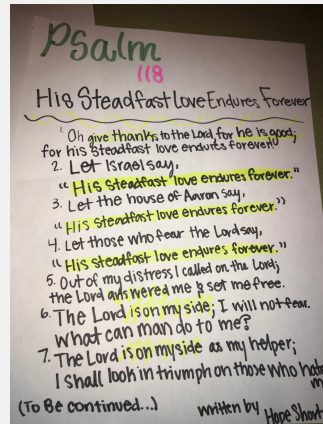 Psalm
118
His Steadfast Love Endures Forever
1 Oh give thanks to the Lord, for he is good;
for his steadfast love endures forever!
2. Let Israel say,
"His steadfast love endures forever."
3. Let the house of Aaron say,
"His steadfast love endures forever."
4. Let those who fear the Lord say,
"His steadfast love endures forever."
5. Out of my distress I called on the Lord;
the Lord answered me & set me free.
6. The Lord is on my side; I will not fear.
What can man do to me?
7. The Lord is on my side as my helper;
I shall look in triumph on those who hate
m
(To Be continued...) written by Hope Short